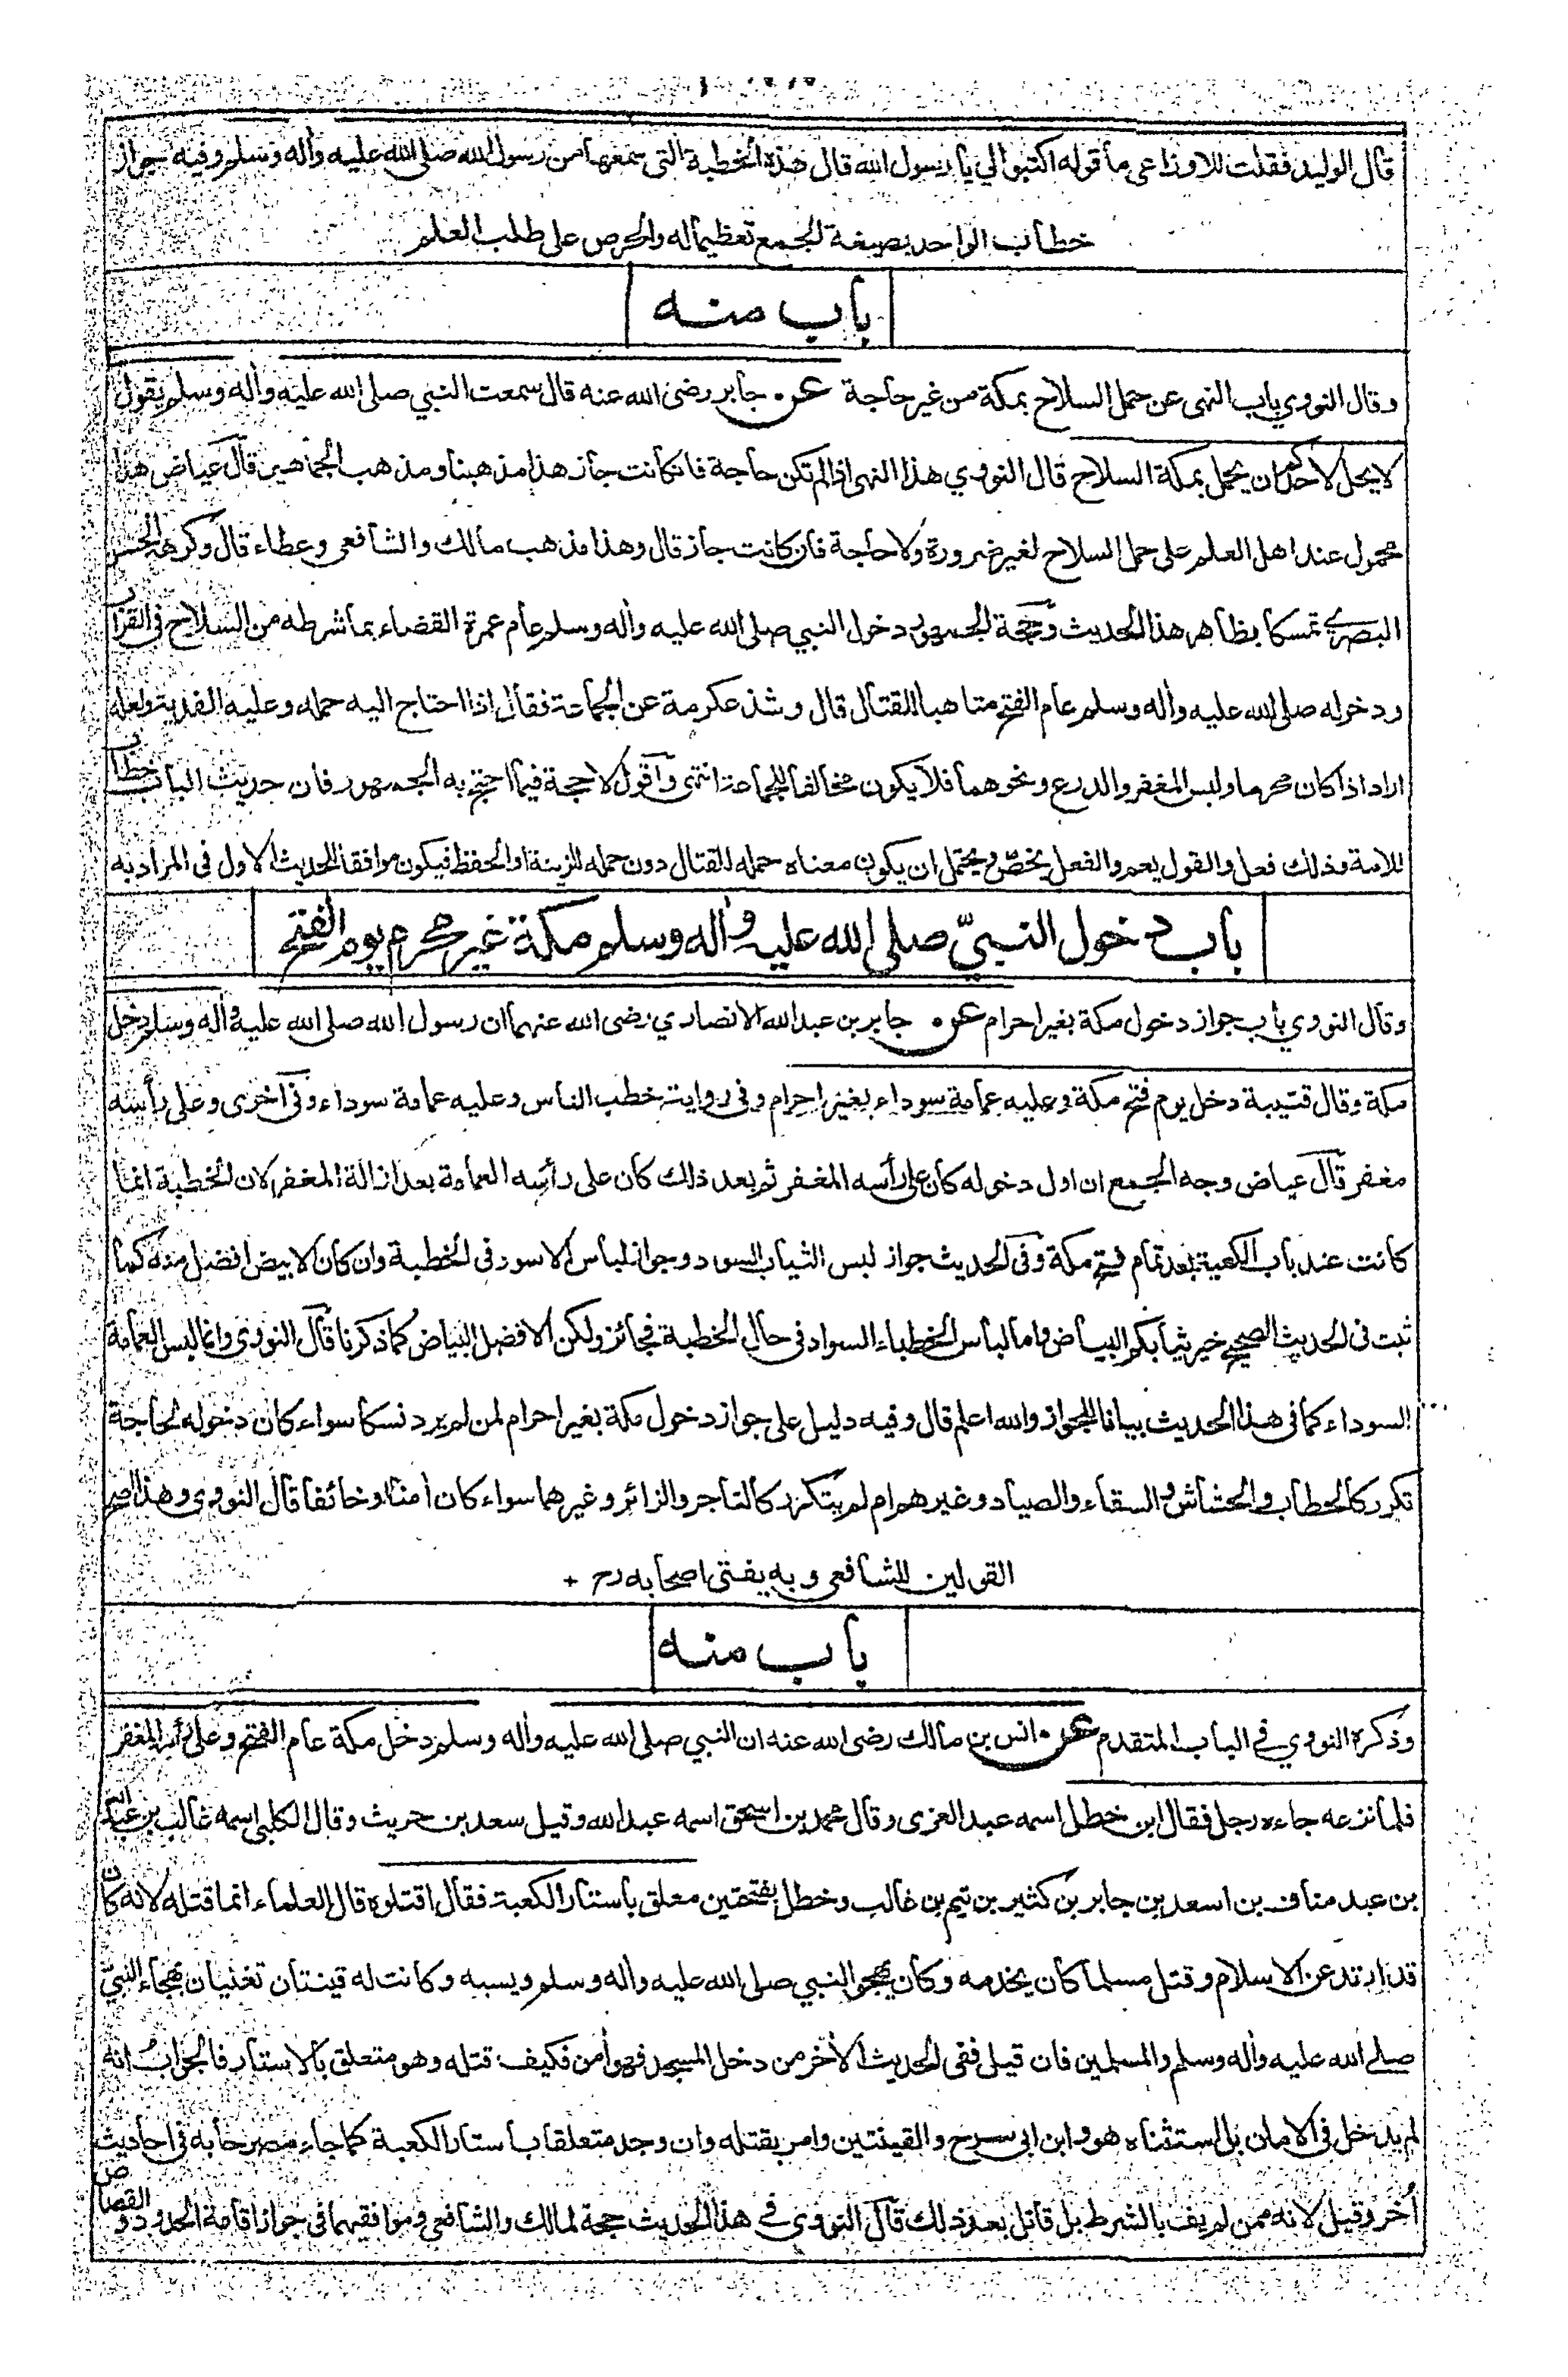 قال الوليد فقلت للاوزاعي ما قوله اكتبوا لي يا رسول الله قال هذه الخطبة التي سمعها من رسول الله صلى الله عليه واله وسلم وفيه جواز
خطاب الواحد بصيغة الجمع تعظيما له والحرص على طلب العلم
باب منه
وقال النووي باب النهى عن حمل السلاح بمكة من غير حاجة عن جابر رضى الله عنه قال سمعت النبي صلى الله عليه واله وسلم يقول
لا يحل لاحدكم ان يحمل بمكة السلاح قال النووي هذا النهى اذا لم تكن حاجة فان كانت جاز هذا مذهبنا ومذهب الجماهير قال عياض هذا
محمول عند اهل العلم على حمل السلاح لغير ضرورة ولا حاجة فان كانت جاز قال وهذا مذهب مالك والشافعى وعطاء قال وكرهه الحسن
البصري تمسكا بظاهر هذا الحديث وحجة الجمهور دخول النبي صلى الله عليه واله وسلم عام عمرة القضاء بما شرطه من السلاح في القراب
ودخوله صلى الله عليه واله وسلم عام الفتح متاهبا للقتال قال وشذ عكرمة عن الجماعة فقال اذا احتاج اليه حمله وعليه الفدية ولعله
اراد اذا كان محرما ولبس المغفر والدرع ونحوهما فلا يكون مخالفا للجماعة انتهى واقول لا حجة فيما احتج به الجمهور فان حديث الباب خطاب
للامة وذلك فعل والقول يعم والفعل يخص ويحتمل ان يكون معناه حمله للقتال دون حمله للزينة او الحفظ فيكون موافقا للحديث الاول فى المراد به
باب دخول النبيّ صلى الله عليه واله وسلم مكة غير محرم يوم الفتح
وقال النووي باب جواز دخول مكة بغير احرام عن جابر بن عبد الله الانصاري رضى الله عنهما ان رسول الله صلى الله عليه واله وسلم دخل
مكة وقال قتيبة دخل يوم فتح مكة وعليه عمامة سوداء بغير احرام وفى رواية خطب الناس وعليه عمامة سوداء وفى اخرى وعلى رأسه
مغفر قال عياض وجه الجمع ان اول دخوله كان على رأسه المغفر ثم بعد ذلك كان على رأسه العمامة بعد ازالة المغفر لان الخطبة انما
كانت عند باب الكعبة بعد تمام فتح مكة وفى الحديث جواز لبس الثياب السود وجواز لباس الاسود فى الخطبة وان كان الابيض افضل منه كما
ثبت فى الحديث الصحيح خير ثيابكم البياض واما لباس الخطباء السواد فى حال الخطبة فجائز ولكن الافضل البياض كما ذكرنا قال النووي وانما لبس العمامة
السوداء كما فى هذا الحديث بيانا للجواز والله اعلم قال وفيه دليل على جواز دخول مكة بغير احرام لمن لم يرد نسكا سواء كان دخوله لحاجة
تكرر كالحطاب والحشاش والسقاء والصياد وغيرهم ام لم يتكرر كالتاجر والزائر وغيرهما سواء كان امنا او خائفا قال النووي وهذا اصح
القولين للشافعى وبه يفتى اصحابه رح +
باب منه
وذكره النووي في الباب المتقدم عن انس بن مالك رضى الله عنه ان النبي صلى الله عليه واله وسلم دخل مكة عام الفتح وعلى رأسه المغفر
فلما نزعه جاءه رجل فقال ابن خطل اسمه عبد العزى وقال محمد بن اسحق اسمه عبد الله وقيل سعد بن حريث وقال الكلبي اسمه غالب بن عبد الله
بن عبد مناف بن اسعد بن جابر بن كثير بن تيم بن غالب وخطل بفتحتين معلق باستار الكعبة فقال اقتلوه قال العلماء انما قتله لانه كان
قد ارتد عن الاسلام وقتل مسلما كان يخدمه وكان يهجو النبي صلى الله عليه واله وسلم ويسبه وكانت له قينتان تغنيان بهجاء النبيّ
صلے الله عليه واله وسلم والمسلمين فان قيل ففى الحديث الأخر من دخل المسجد فهو أمن فكيف قتله وهو متعلق بالاستار فالجواب انه
لم يدخل فى الامان بل استثناه هو وابن ابى سرح والقينتين وامر بقتله وان وجد متعلقا باستار الكعبة كما جاء مصرحا به فى احاديث
أخر وقيل لانه ممن لم يف بالشرط بل قاتل بعد ذلك قال النووي في هذا الحديث حجة لمالك والشافعي وموافقيهما فى جواز اقامة الحدود والقصاص